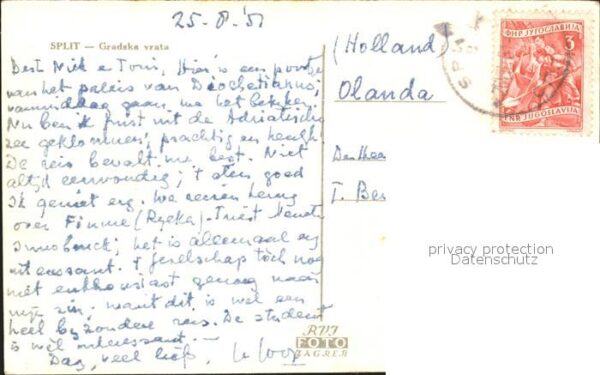 25-8-'51
SPLIT — Gradska vrata
Best Niek e Toni, Hier is een poortje
van het paleis van Diocletianus,
vanmiddag gaan we het bekijken.
Nu ben ik juist uit de Adriatische
zee geklommen, prachtig en heerlijk.
De reis bevalt me best. Niet
altijd eenvoudig; 't eten goed
Ik geniet erg. We reizen terug
over Fiume (Rijeka)-Triest
Innsbruck; het is allemaal erg
interessant. 't gezelschap toch nog
niet enthousiast genoeg naar
mijn zin, want dit is wel een
heel bijzondere reis. De student
is wèl interessant.—
Dag, veel liefs,
(Holland)
Olanda
Den Heer
T. Ber
SPLIT
ФНР ЈУГОСЛАВИЈА
3
FNR JUGOSLAVIJA
privacy protection
Datenschutz
RVI
FOTO
ZAGREB